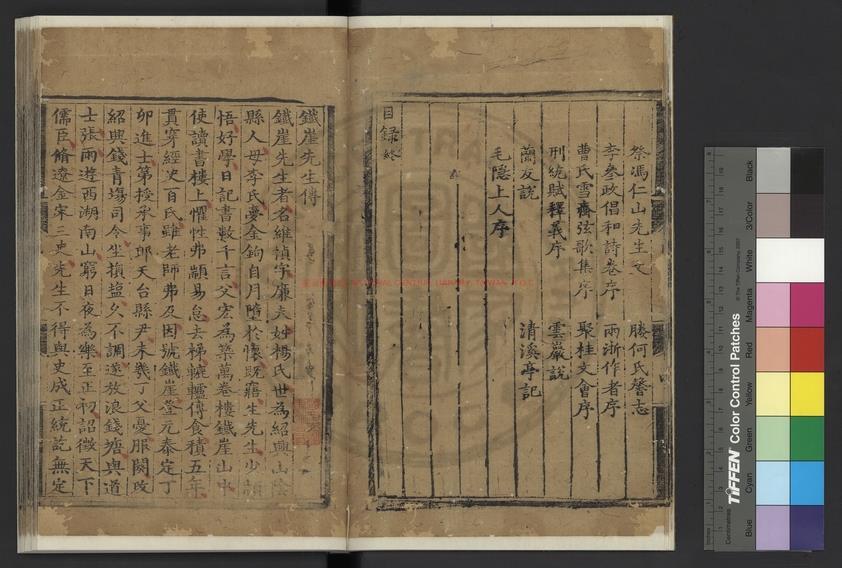 祭馮仁山先生文　滕何氏謦志
李參政倡和詩卷序　兩浙作者序
曹氏雪齋弦歌集序　聚桂文會序
刑統賦釋義序　雲巖說
蘭友說　清溪亭記
毛隱上人序
目録終
鐵崖先生傳
鐵崖先生者名維禎字廉夫姓楊氏世為紹興山陰
縣人母李氏夢金鉤自月墮於懷既寤生先生少穎
悟好學日記書數千言父宏為築萬卷樓鐵崖山中
使讀書樓上懼性弗顓易怠去梯轆轤傳食積五年
貫穿經史百氏雖老師弗及因號鐵崖登元泰定丁
卯進士第授承事郎天台縣尹未幾丁父憂服闋改
紹興錢青塲司令坐損鹽久不調遂放浪錢塘與道
士張雨遊西湖南山窮日夜為樂至正初詔徵天下
儒臣脩遼金宋三史先生不得與史成正統訖無定
TIFFEN Color Control Patches
© The Tiffen Company, 2007
Centimetres
Inches
Blue
Cyan
Green
Yellow
Red
Magenta
White
3/Color
Black